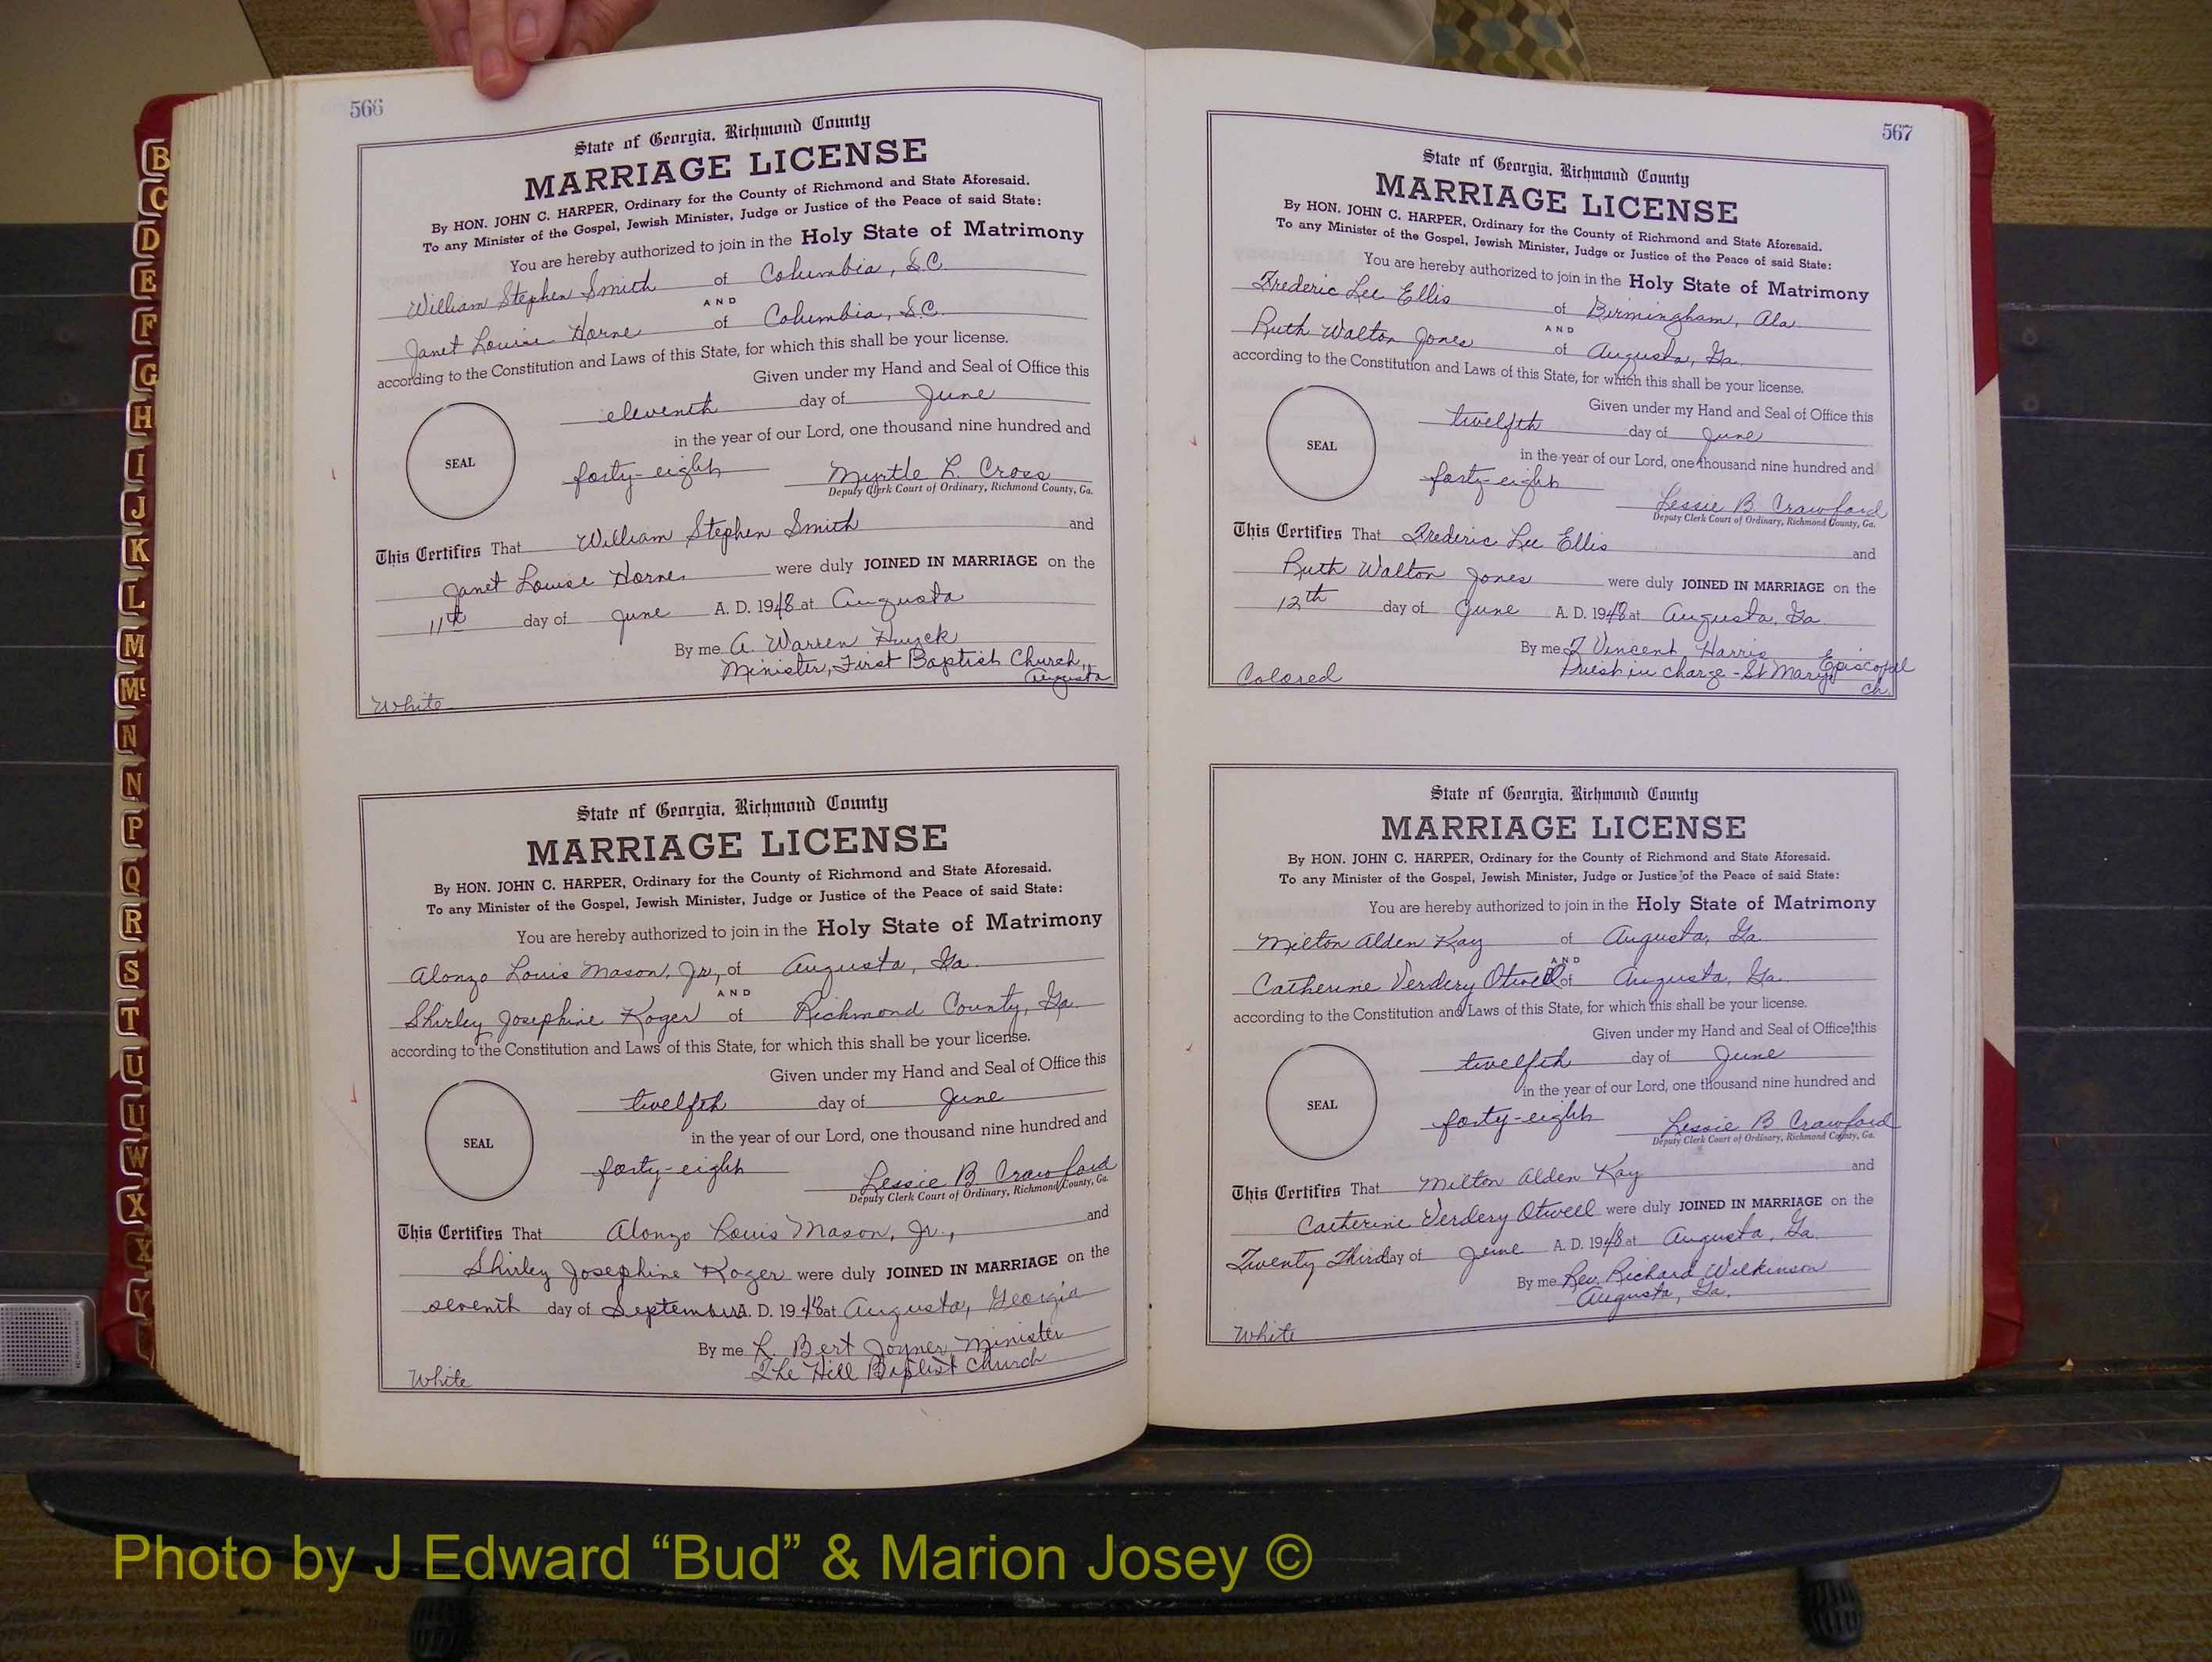 566
State of Georgia, Richmond County
MARRIAGE LICENSE
By HON. JOHN C. HARPER, Ordinary for the County of Richmond and State Aforesaid.
To any Minister of the Gospel, Jewish Minister, Judge or Justice of the Peace of said State:
You are hereby authorized to join in the Holy State of Matrimony
William Stephen Smith of Columbia, S.C.
AND
Janet Louise Horne of Columbia, S.C.
according to the Constitution and Laws of this State, for which this shall be your license.
Given under my Hand and Seal of Office this
eleventh day of June
in the year of our Lord, one thousand nine hundred and
SEAL
forty-eight Myrtle L. Cross
Deputy Clerk Court of Ordinary, Richmond County, Ga.
This Certifies That William Stephen Smith and
Janet Louise Horne were duly JOINED IN MARRIAGE on the
11th day of June A. D. 1948 at Augusta
By me A. Warren Huyck
Minister, First Baptist Church,
Augusta
White
State of Georgia, Richmond County
MARRIAGE LICENSE
By HON. JOHN C. HARPER, Ordinary for the County of Richmond and State Aforesaid.
To any Minister of the Gospel, Jewish Minister, Judge or Justice of the Peace of said State:
You are hereby authorized to join in the Holy State of Matrimony
Alonzo Louis Mason, Jr., of Augusta, Ga.
AND
Shirley Josephine Koger of Richmond County, Ga.
according to the Constitution and Laws of this State, for which this shall be your license.
Given under my Hand and Seal of Office this
twelfth day of June
in the year of our Lord, one thousand nine hundred and
SEAL
forty-eight Lessie B Crawford
Deputy Clerk Court of Ordinary, Richmond County, Ga.
This Certifies That Alonzo Louis Mason, Jr., and
Shirley Josephine Koger were duly JOINED IN MARRIAGE on the
seventh day of September A. D. 1948 at Augusta, Georgia
By me R. Bert Joyner, Minister
The Hill Baptist Church
White
567
State of Georgia, Richmond County
MARRIAGE LICENSE
By HON. JOHN C. HARPER, Ordinary for the County of Richmond and State Aforesaid.
To any Minister of the Gospel, Jewish Minister, Judge or Justice of the Peace of said State:
You are hereby authorized to join in the Holy State of Matrimony
Frederic Lee Ellis of Birmingham, Ala.
AND
Ruth Walton Jones of Augusta, Ga.
according to the Constitution and Laws of this State, for which this shall be your license.
Given under my Hand and Seal of Office this
twelfth day of June
SEAL
in the year of our Lord, one thousand nine hundred and
forty-eight Lessie B Crawford
Deputy Clerk Court of Ordinary, Richmond County, Ga.
This Certifies That Frederic Lee Ellis and
Ruth Walton Jones were duly JOINED IN MARRIAGE on the
12th day of June A. D. 1948 at Augusta, Ga.
By me Vincent Harris
Priest in charge - St Mary Episcopal
Ch.
Colored
State of Georgia, Richmond County
MARRIAGE LICENSE
By HON. JOHN C. HARPER, Ordinary for the County of Richmond and State Aforesaid.
To any Minister of the Gospel, Jewish Minister, Judge or Justice of the Peace of said State:
You are hereby authorized to join in the Holy State of Matrimony
Milton Alden Kay of Augusta, Ga.
AND
Catherine Verdery Otwell of Augusta, Ga.
according to the Constitution and Laws of this State, for which this shall be your license.
Given under my Hand and Seal of Office this
twelfth day of June
in the year of our Lord, one thousand nine hundred and
SEAL
forty-eight Lessie B Crawford
Deputy Clerk Court of Ordinary, Richmond County, Ga.
This Certifies That Milton Alden Kay and
Catherine Verdery Otwell were duly JOINED IN MARRIAGE on the
Twenty Third day of June A. D. 1948 at Augusta, Ga.
By me Rev. Richard Wilkinson
Augusta, Ga.
White
B
C
D
E
F
G
H
I
J
K
L
M
Mc
N
N
P
Q
R
S
T
U
U
W
X
X
Y
Photo by J Edward “Bud” & Marion Josey ©